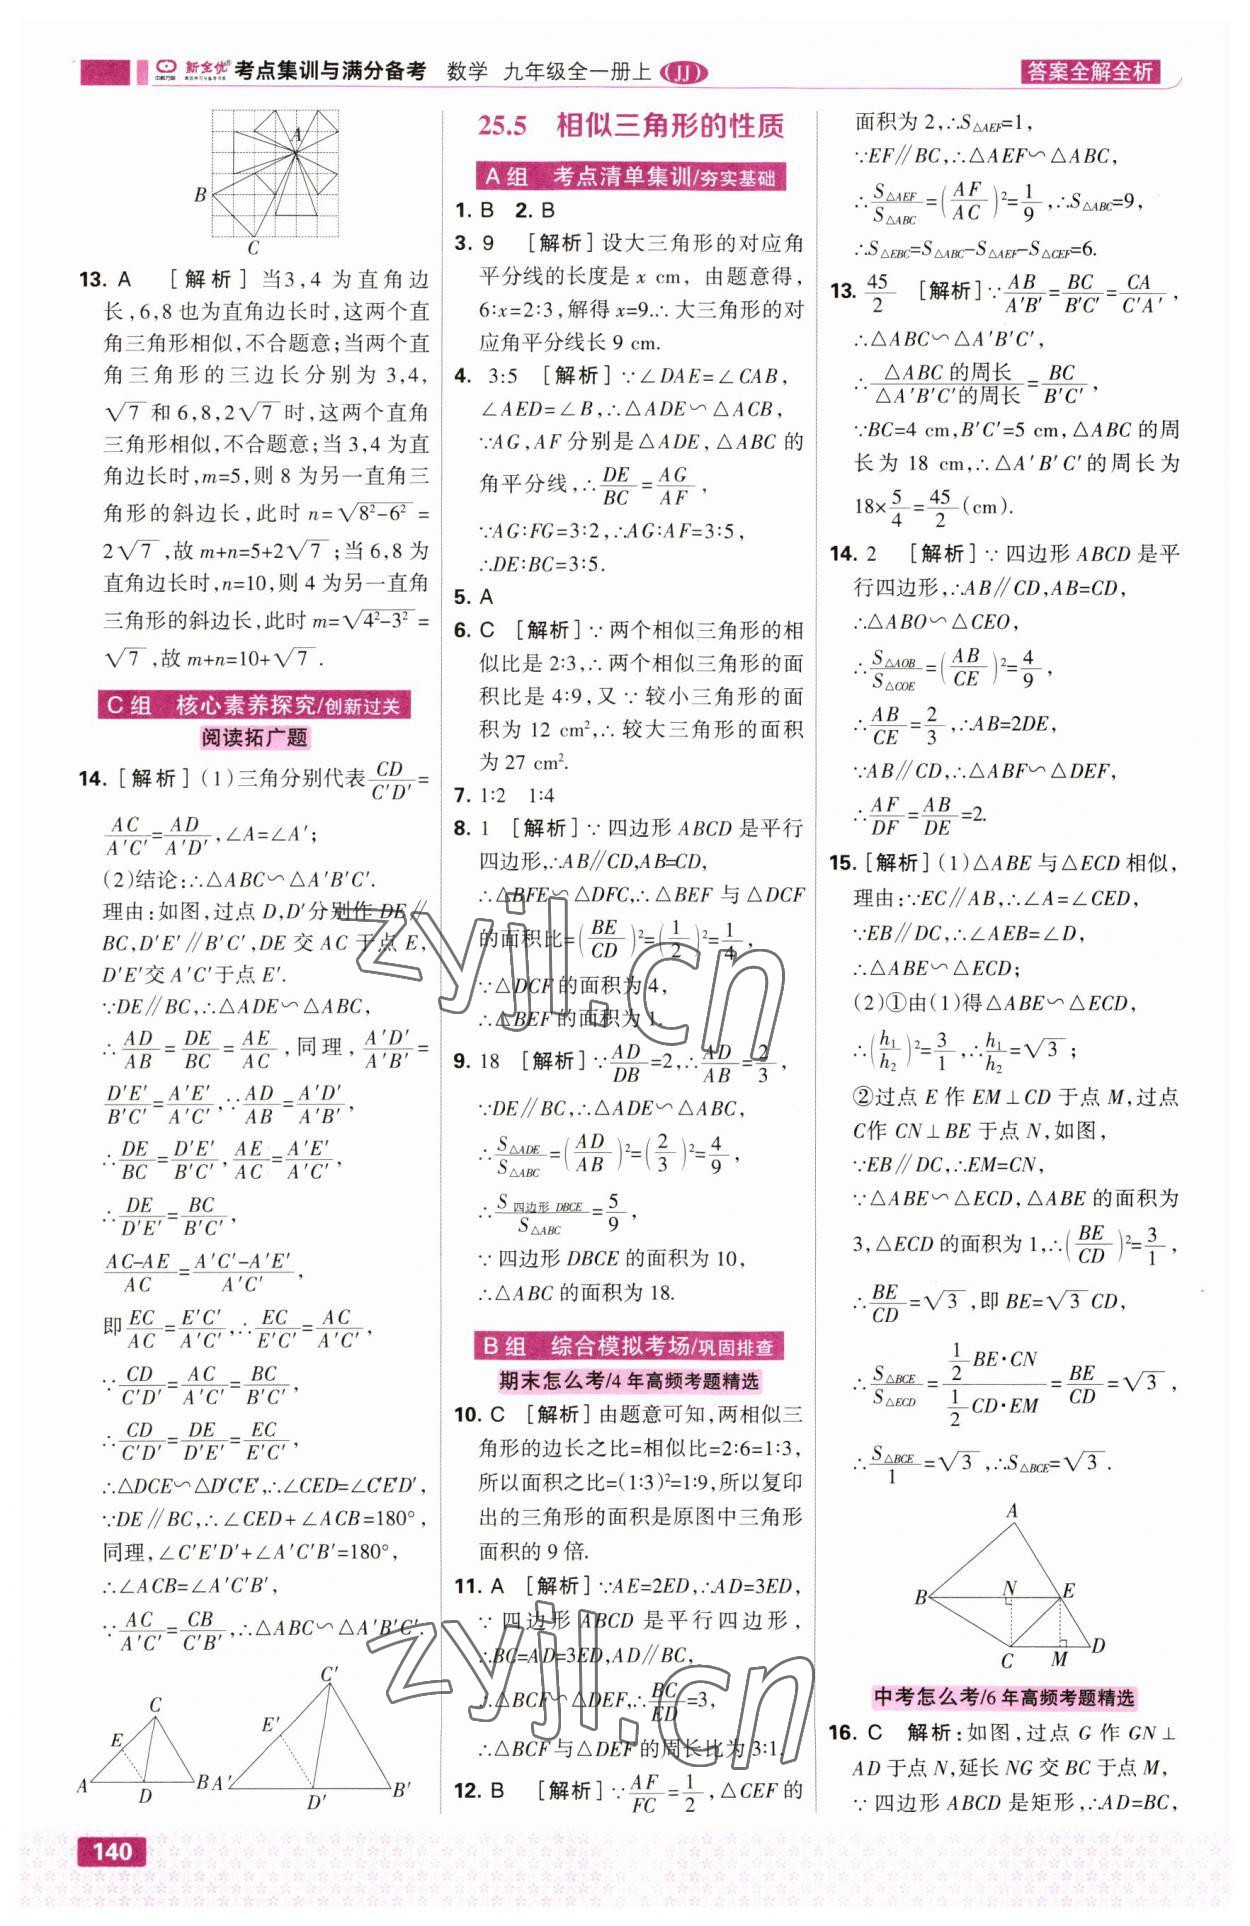 新全优 考点集训与满分备考 数学 九年级全一册上 (JJ) 答案全解全析
A
B
C
13. A [解析] 当3,4 为直角边
长,6,8 也为直角边长时,这两个直
角三角形相似,不合题意;当两个直
角三角形的三边长分别为 3,4,
√7 和 6,8,2√7 时,这两个直角
三角形相似,不合题意;当 3,4 为直
角边长时,m=5,则 8 为另一直角三
角形的斜边长,此时 n=√(8²-6²)=
2√7,故 m+n=5+2√7;当 6,8 为
直角边长时,n=10,则 4 为另一直角
三角形的斜边长,此时 m=√(4²-3²)=
√7,故 m+n=10+√7.
C 组 核心素养探究/创新过关
阅读拓广题
14. [解析] (1)三角分别代表 CD/C'D'=
AC/A'C'=AD/A'D',∠A=∠A';
(2)结论:∴△ABC∽△A'B'C'.
理由:如图,过点 D,D'分别作 DE∥
BC,D'E'∥B'C',DE 交 AC 于点 E,
D'E'交 A'C'于点 E'.
∵DE∥BC,∴△ADE∽△ABC,
∴AD/AB=DE/BC=AE/AC,同理,A'D'/A'B'=
D'E'/B'C'=A'E'/A'C',∵AD/AB=A'D'/A'B',
∴DE/BC=D'E'/B'C',AE/AC=A'E'/A'C',
∴DE/D'E'=BC/B'C',
(AC-AE)/AC=(A'C'-A'E')/A'C',
即EC/AC=E'C'/A'C',∴EC/E'C'=AC/A'C',
∵CD/C'D'=AC/A'C'=BC/B'C',
∴CD/C'D'=DE/D'E'=EC/E'C',
∴△DCE∽△D'C'E',∴∠CED=∠C'E'D',
∵DE∥BC,∴∠CED+∠ACB=180°,
同理,∠C'E'D'+∠A'C'B'=180°,
∴∠ACB=∠A'C'B',
∵AC/A'C'=CB/C'B',∴△ABC∽△A'B'C'.
C E A D B
C' E' A' D' B'
140
25.5 相似三角形的性质
A 组 考点清单集训/夯实基础
1. B 2. B
3. 9 [解析] 设大三角形的对应角
平分线的长度是 x cm, 由题意得,
6∶x=2∶3,解得 x=9.∴大三角形的对
应角平分线长 9 cm.
4. 3∶5 [解析] ∵∠DAE=∠CAB,
∠AED=∠B,∴△ADE∽△ACB,
∵AG,AF 分别是△ADE,△ABC 的
角平分线,∴DE/BC=AG/AF,
∵AG∶FG=3∶2,∴AG∶AF=3∶5,
∴DE∶BC=3∶5.
5. A
6. C [解析] ∵两个相似三角形的相
似比是 2∶3,∴两个相似三角形的面
积比是 4∶9,又∵较小三角形的面
积为 12 cm²,∴较大三角形的面积
为 27 cm².
7. 1∶2 1∶4
8. 1 [解析] ∵四边形 ABCD 是平行
四边形,∴AB∥CD,AB=CD,
∴△BFE∽△DFC,∴△BEF 与△DCF
的面积比=(BE/CD)²=(1/2)²=1/4,
∵△DCF 的面积为 4,
∴△BEF 的面积为 1.
9. 18 [解析] ∵AD/DB=2,∴AD/AB=2/3,
∵DE∥BC,∴△ADE∽△ABC,
∴S△ADE/S△ABC=(AD/AB)²=(2/3)²=4/9,
∴S四边形DBCE/S△ABC=5/9,
∵四边形 DBCE 的面积为 10,
∴△ABC 的面积为 18.
B 组 综合模拟考场/巩固排查
期末怎么考/4 年高频考题精选
10. C [解析] 由题意可知,两相似三
角形的边长之比=相似比=2∶6=1∶3,
所以面积之比=(1∶3)²=1∶9,所以复印
出的三角形的面积是原图中三角形
面积的 9 倍.
11. A [解析] ∵AE=2ED,∴AD=3ED,
∵四边形 ABCD 是平行四边形,
∴BC=AD=3ED,AD∥BC,
∴△BCF∽△DEF,∴BC/ED=3,
∴△BCF 与△DEF 的周长比为 3∶1.
12. B [解析] ∵AF/FC=1/2,△CEF 的
面积为 2,∴S△AEF=1,
∵EF∥BC,∴△AEF∽△ABC,
∴S△AEF/S△ABC=(AF/AC)²=1/9,∴S△ABC=9,
∴S△EBC=S△ABC-S△AEF-S△CEF=6.
13. 45/2 [解析] ∵AB/A'B'=BC/B'C'=CA/C'A',
∴△ABC∽△A'B'C',
∴△ABC 的周长/△A'B'C'的周长=BC/B'C',
∵BC=4 cm,B'C'=5 cm,△ABC 的周
长为 18 cm,∴△A'B'C'的周长为
18×5/4=45/2(cm).
14. 2 [解析] ∵四边形 ABCD 是平
行四边形,∴AB∥CD,AB=CD,
∴△ABO∽△CEO,
∴S△AOB/S△COE=(AB/CE)²=4/9,
∴AB/CE=2/3,∴AB=2DE,
∵AB∥CD,∴△ABF∽△DEF,
∴AF/DF=AB/DE=2.
15. [解析] (1)△ABE 与△ECD 相似,
理由:∵EC∥AB,∴∠A=∠CED,
∵EB∥DC,∴∠AEB=∠D,
∴△ABE∽△ECD;
(2)①由(1)得△ABE∽△ECD,
∴(h₁/h₂)²=3/1,∴h₁/h₂=√3;
②过点 E 作 EM⊥CD 于点 M,过点
C作 CN⊥BE 于点 N,如图,
∵EB∥DC,∴EM=CN,
∵△ABE∽△ECD,△ABE 的面积为
3,△ECD 的面积为 1,∴(BE/CD)²=3/1,
∴BE/CD=√3,即 BE=√3CD,
∴S△BCE/S△ECD=(1/2 BE·CN)/(1/2 CD·EM)=BE/CD=√3,
∴S△BCE/1=√3,∴S△BCE=√3.
A
B N E
C M D
中考怎么考/6 年高频考题精选
16. C 解析:如图,过点 G 作 GN⊥
AD 于点 N,延长 NG 交 BC 于点 M,
∵四边形 ABCD 是矩形,∴AD=BC,
zyjl.cn
zyjl.cn